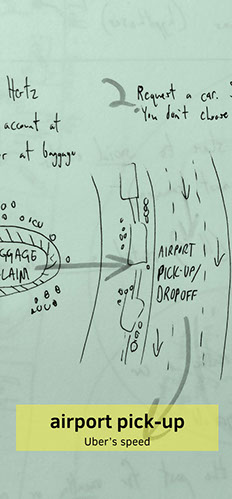 Hertz
2. Request a car.
account at
You don't choose
at baggage
BAGGAGE
CLAIM
AIRPORT
PICK-UP/
DROPOFF
airport pick-up
Uber's speed